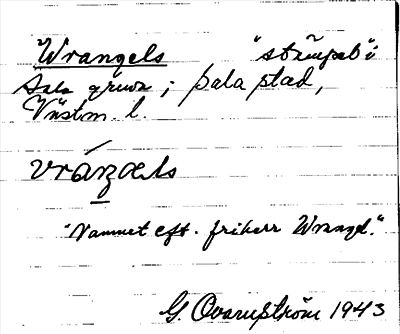 Wrangels "stämpel" i
Sala gruva ; Sala stad,
Västm. l.
vráŋæls
"Namnet eft. friherr Wrangel."
G. Qvarnström 1943